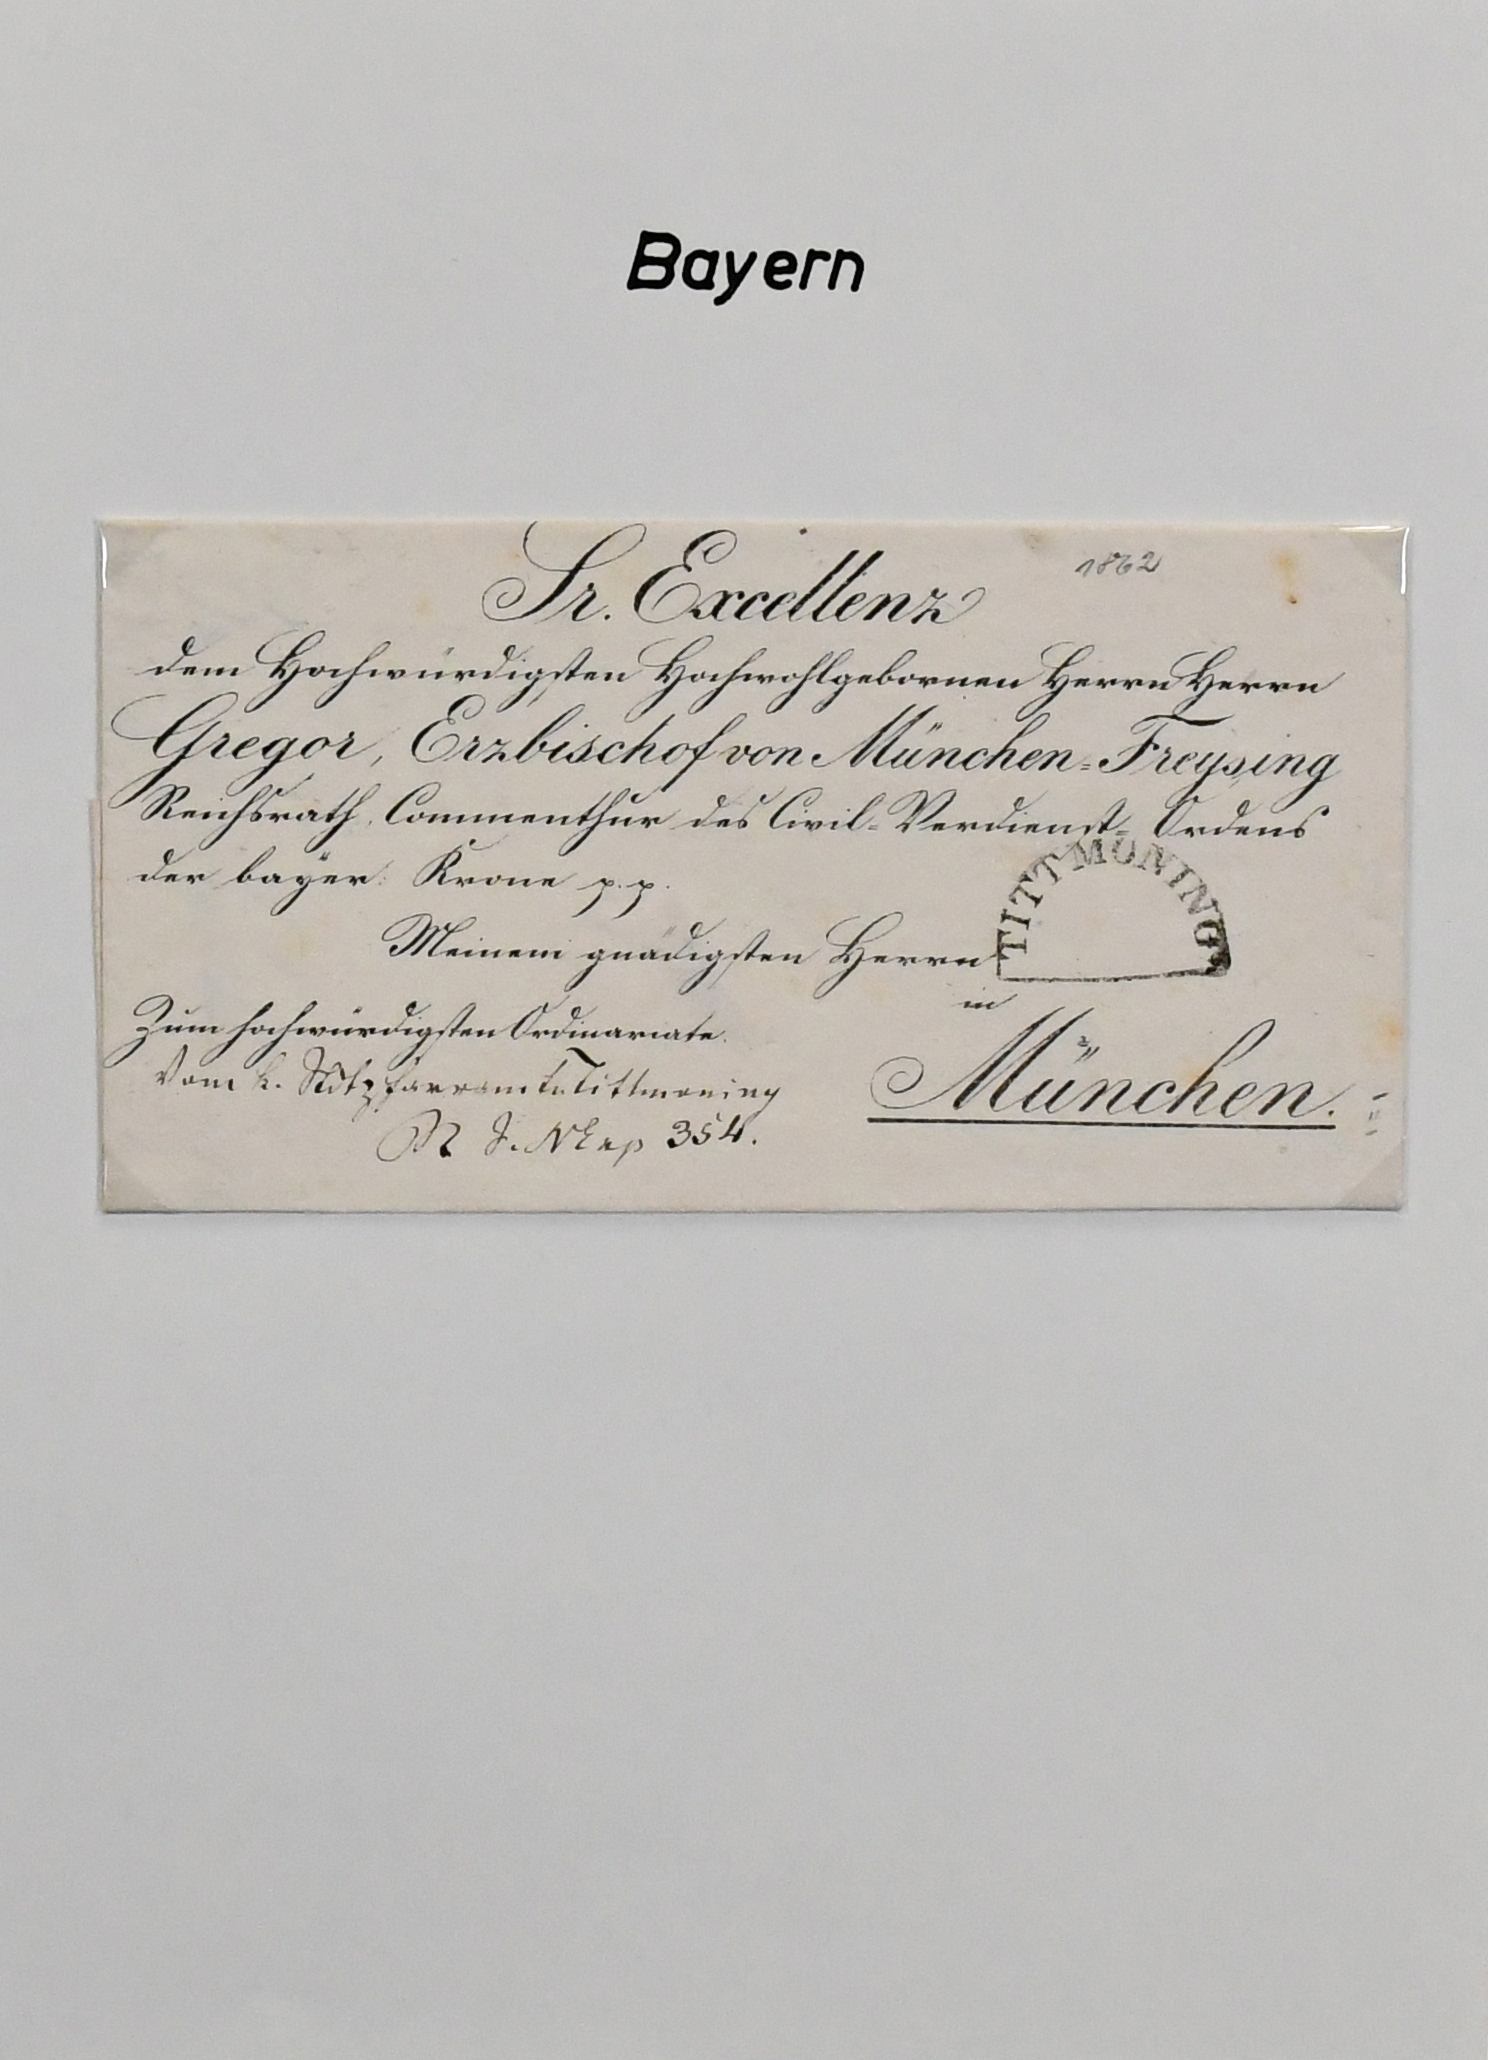 Bayern
1862
Sr. Excellenz
dem Hochwürdigsten Hochwohlgebornen Herrn Herrn
Gregor, Erzbischof von München=Freysing
Reichsrath, Commenthur des Civil=Verdienst=Ordens
der bayer: Krone p.p.
TITTMONING
Meinem gnädigsten Herrn
in
Zum hochwürdigsten Ordinariate.
München.
Vom k. Tittmoning
354.